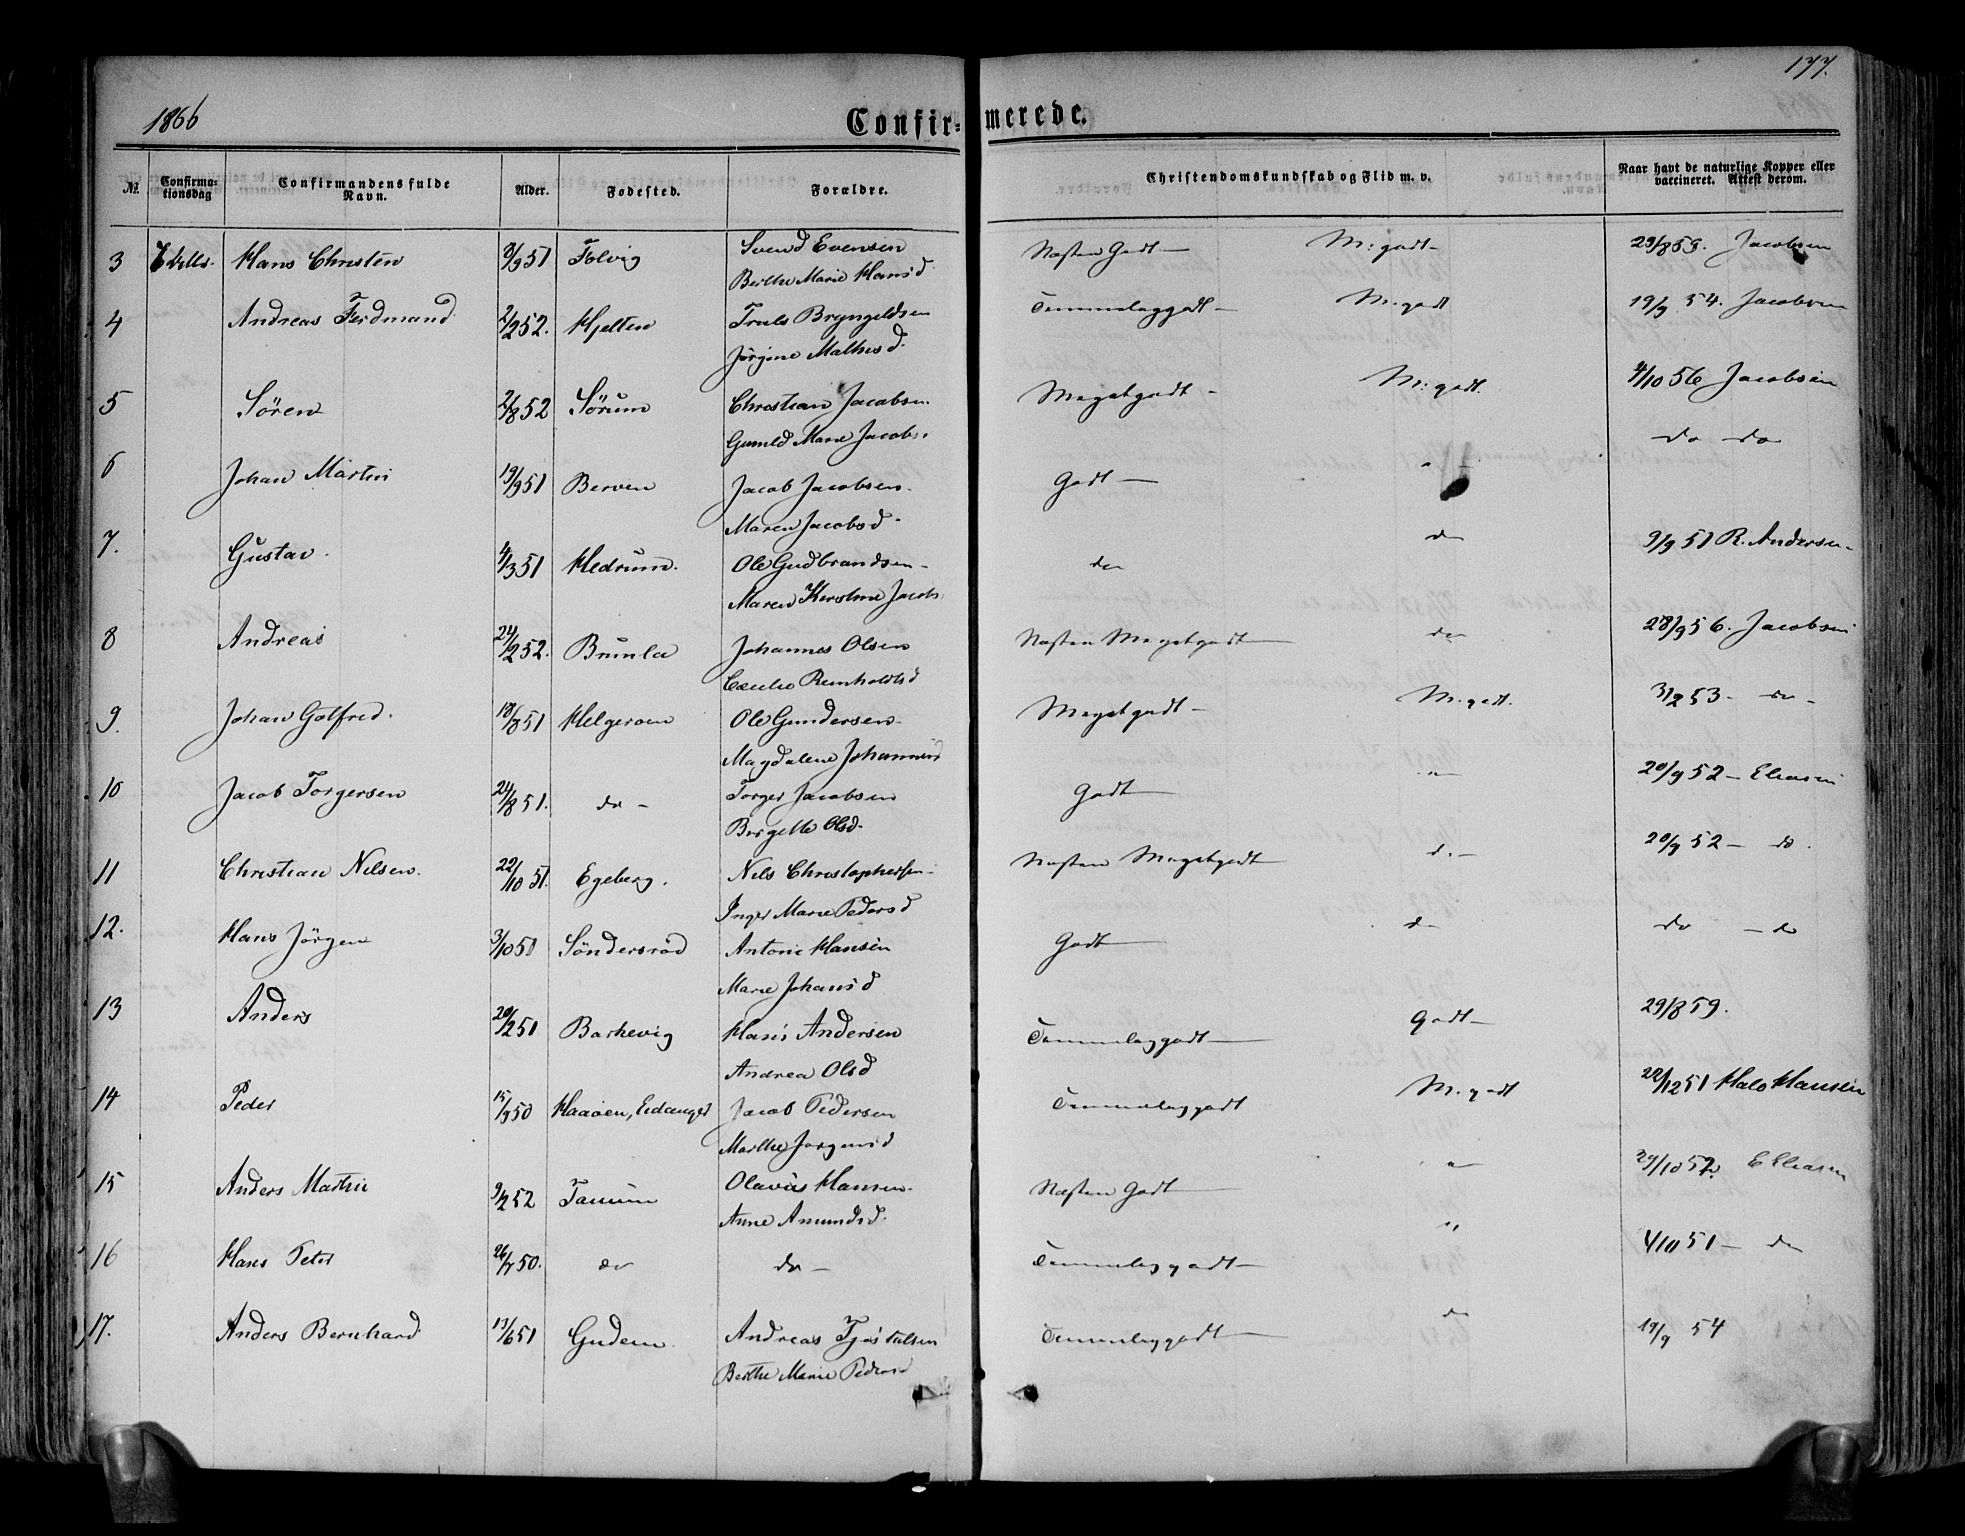 1866
177.
Confirmerede.
№. Confirmationsdag Confirmandens fulde Navn. Alder. Fødested. Forældre. Christendomskundskab og Flid m. v. Naar havt de naturlige Kopper eller vaccineret. Attest derom.
3 Hans Christen 8/9 51 Tolvig Svend Evensen Næsten Godt — M: godt — 29/8 59. Jacobsen
Berthe Marie Hansd
4 Andreas Ferdinand 2/2 52. Hjelten Truls Bryngeldsen Temmeleggodt — M. godt 19/9 54. Jacobsen
Jørgine Mathisd.
5 Søren 2/8 52 Sørum Christian Jacobsen Megetgodt — M: godt. 4/10 56 Jacobsen
Gunild Marie Jacobs.
6 Johan Martin 19/9 51 Berven Jacob Jacobsen. Godt — " do do
Maren Jacobsd.
7. Gustav. 4/3 51 Hedrum. Ole Gudbrandsen — do do 9/9 51 R. Andersen
Maren Kirstine Jacobs.
8 Andreas 24/2 52. Brunla Johannes Olsen Næsten Megetgodt — do 28/9 56. Jacobsen
Cecilie Reinholdtsd
9. Johan Gotfred. 18/8 51 Helgeroen Ole Gundersen Megetgodt — M. godt. 3/2 53 — do —
Magdalene Johannesd
10 Jacob Torgersen 24/8 51. do — Torger Jacobsen Godt — " 20/9 52 — Eliasen
Birgette Olsd.
11 Christian Nilsen. 22/10 51. Egeberg. Nils Christophersen Næsten Megetgodt d. — 20/9 52 — do.
Inger Marie Pedersd
12. Hans Jörgen 3/10 51 Söndersröd Antoni Hansen Godt — do do — do
Marie Johansd
13 Anders 20/2 51 Barkevig Hans Andersen Temmeleggodt — Godt — 29/8 59.
Andrea Olsd
14 Peder 15/9 50 Haaøen, Eidanger Jacob Pedersen Temmeleggodt M. godt 22/12 51 Halv Hansen
Marthe Jørgensd
15 Anders Martin 9/2 52 Tanum Olavus Hansen. Næsten Godt — " 29/10 52 E Eliasen
Anne Amundsd.
16 Hans Peter 26/7 50. do do — Temmeleggodt — " 4/10 51 — do
17. Anders Bernhard 13/6 51 Gudem. Andreas Tjøstolsen Temmeleggodt — do 19/9 54
Berthe Marie Pedersd